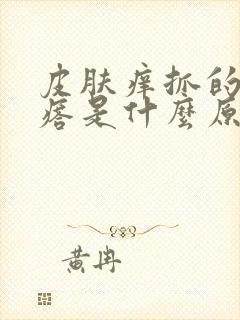 皮肤痒抓的
痞是什麼原
黄冉